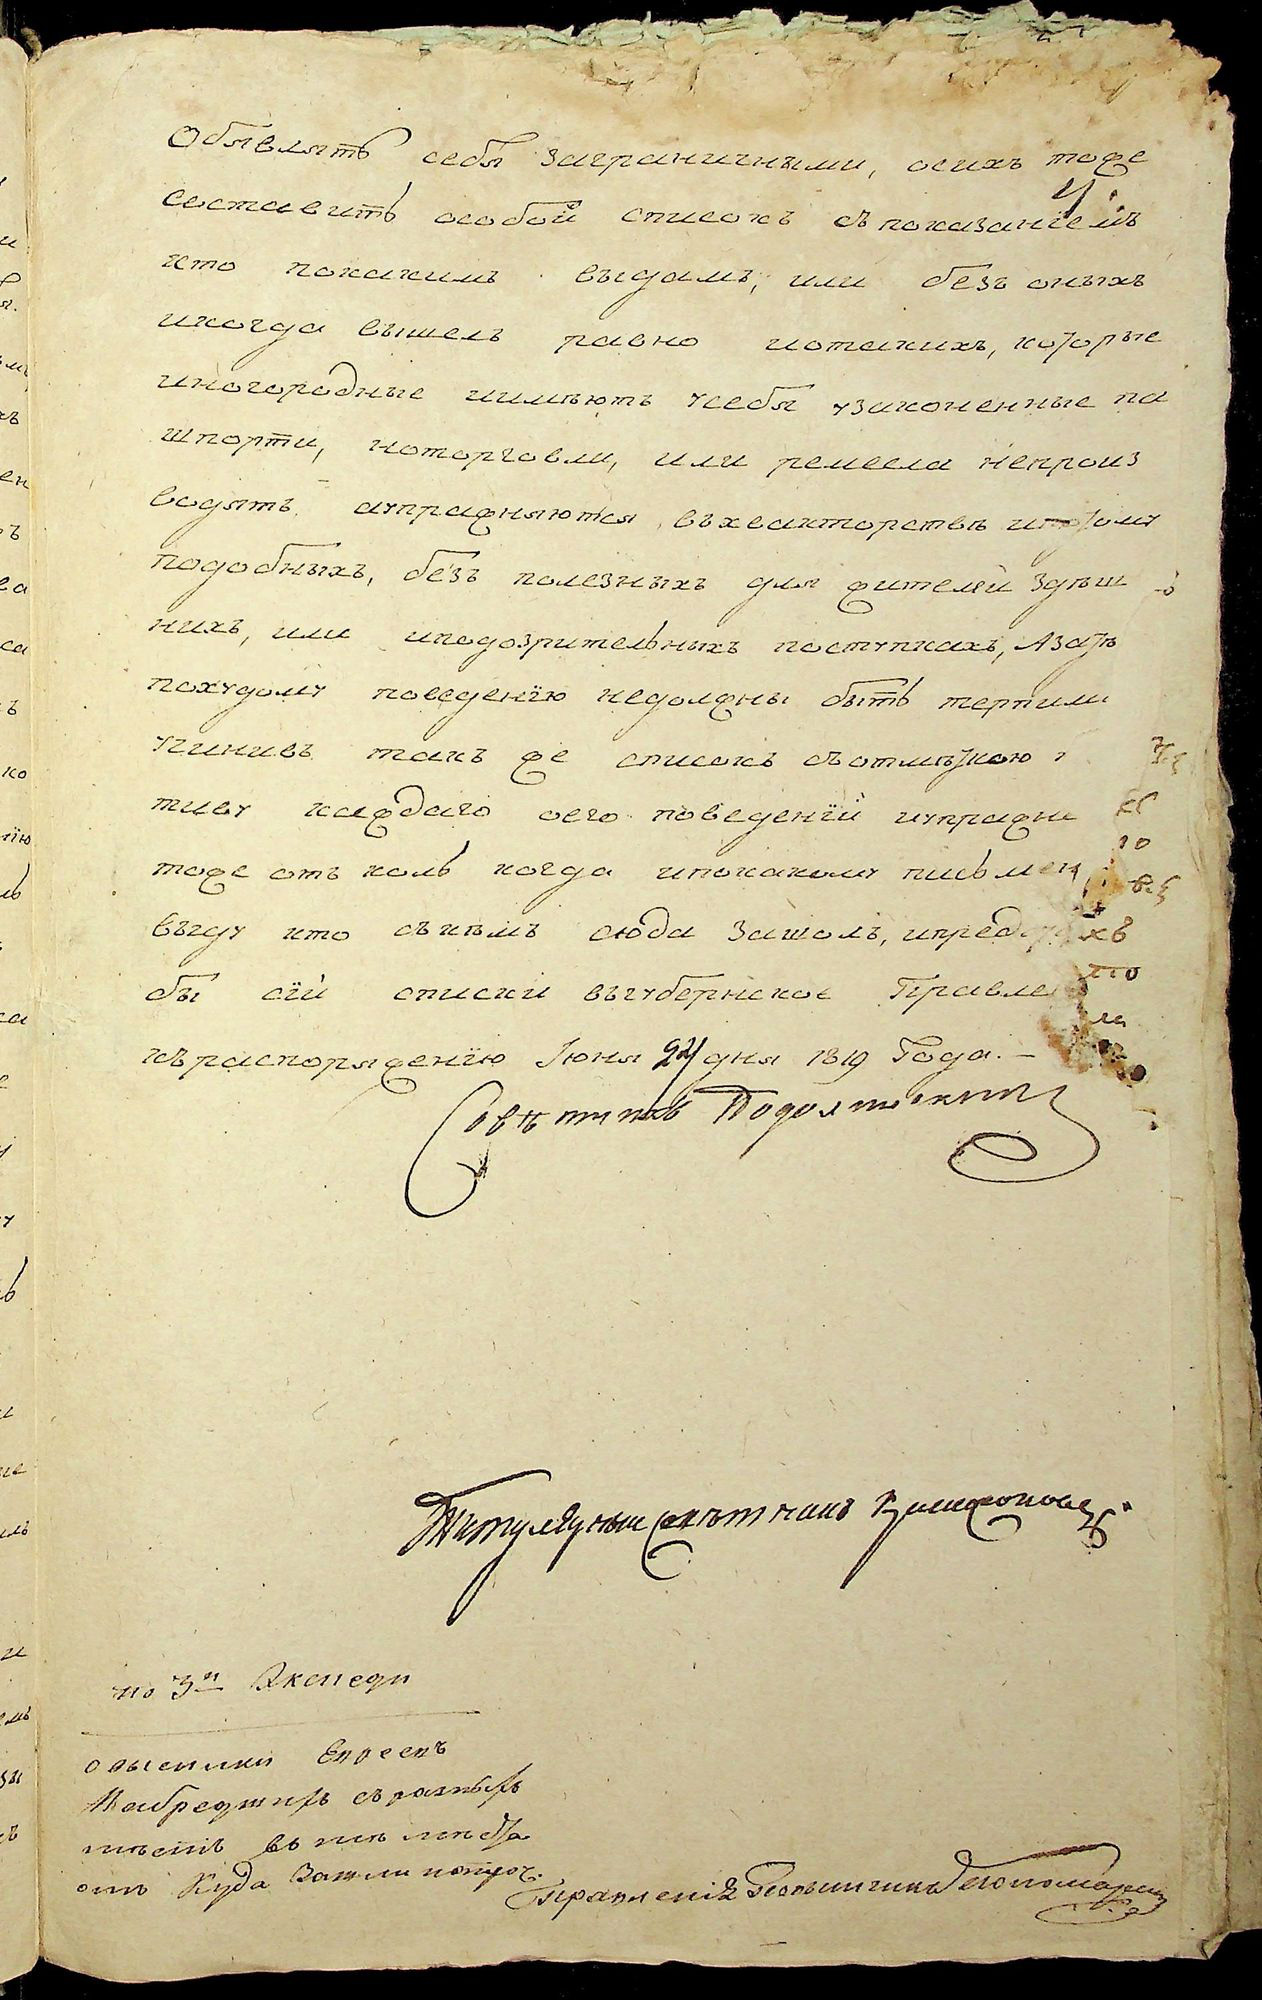 Объявлять себя заграничными, осихъ тоже
составить особой списокъ съпоказанїемъ
кто покакимъ видамъ, или безъ оныхъ
икогда вышелъ равно иотакихъ, которые
иногородные иимѣютъ усебя узаконенные па
шпорты,ноторговли, или ремесла непроиз
водятъ аупражняются въхеакторствѣ итому
подобныхъ, безъ полезныхъ для жителей здѣш
нихъ, или иподозрительныхъ поступкахъ, Азатѣ
похудому поведенїю недолжны быть терпимы
учинивъ такъ же списокъ съотмѣткою
тиву каждаго оего поведенїи иупражне
тоже отъ коль когда ипокакому письмен
виду кто съкѣмъ сюда зашолъ, ипредста
бы сїи списки вьгубернское Правле
къраспоряженїю Июня 24 дня 1819 Года.
Совѣтникъ Подолинский
Титулярный совѣтникъ
по 3й Экспеди
овысылки Евреевъ
Набредшихъ съразныхъ
мѣстъ въ тѣ мѣста
отъ Куда Зашли ипроч.